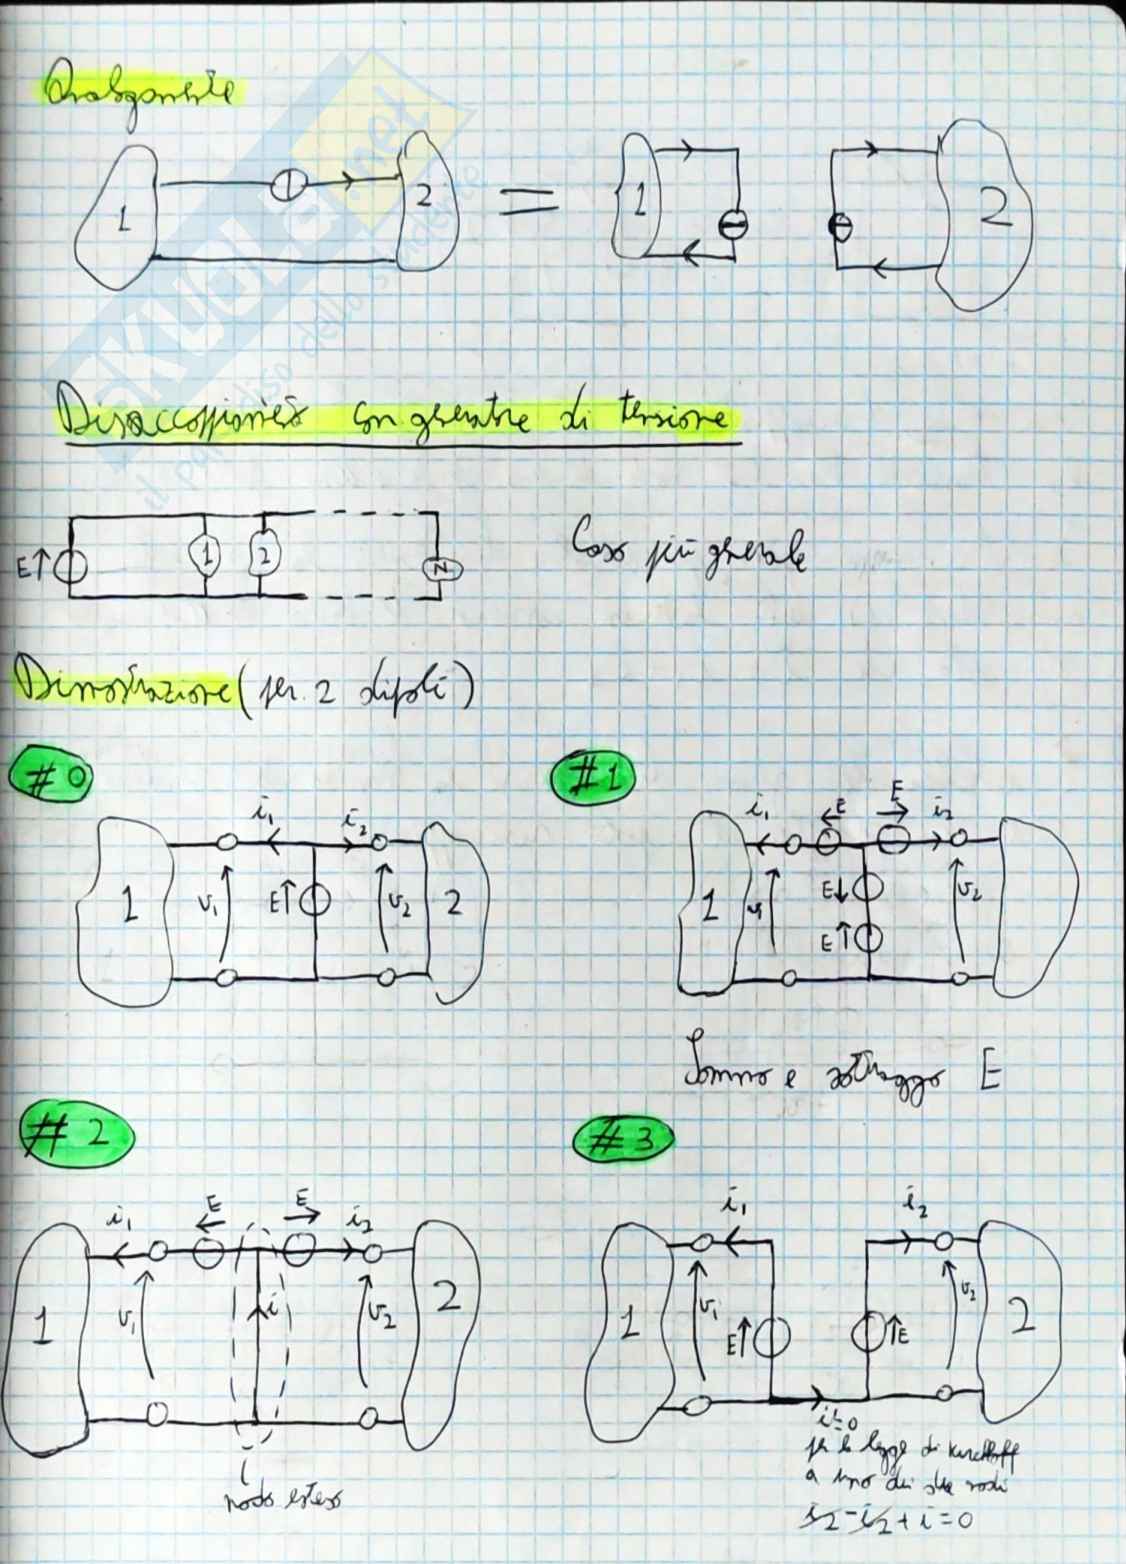 Analogamente
1
2
=
1
2
Disaccoppiamento con generatore di tensione
E↑
1
2
N
Caso più generale
Dimostrazione (per 2 dipoli)
#0
#1
i₁
i₂
1
v₁
E↑
v₂
2
i₁
E
E
i₂
1
v₁
E↓
E↑
v₂
Sommo e sottraggo E
#2
#3
i₁
E
E
i₂
1
v₁
i
v₂
2
nodo esteso
i₁
i₂
1
v₁
E↑
↑E
v₂
2
i=0
per la legge di Kirchhoff
a uno dei due nodi
i₂-i₂+i=0
SKUOLA.net
il paradiso dello studente